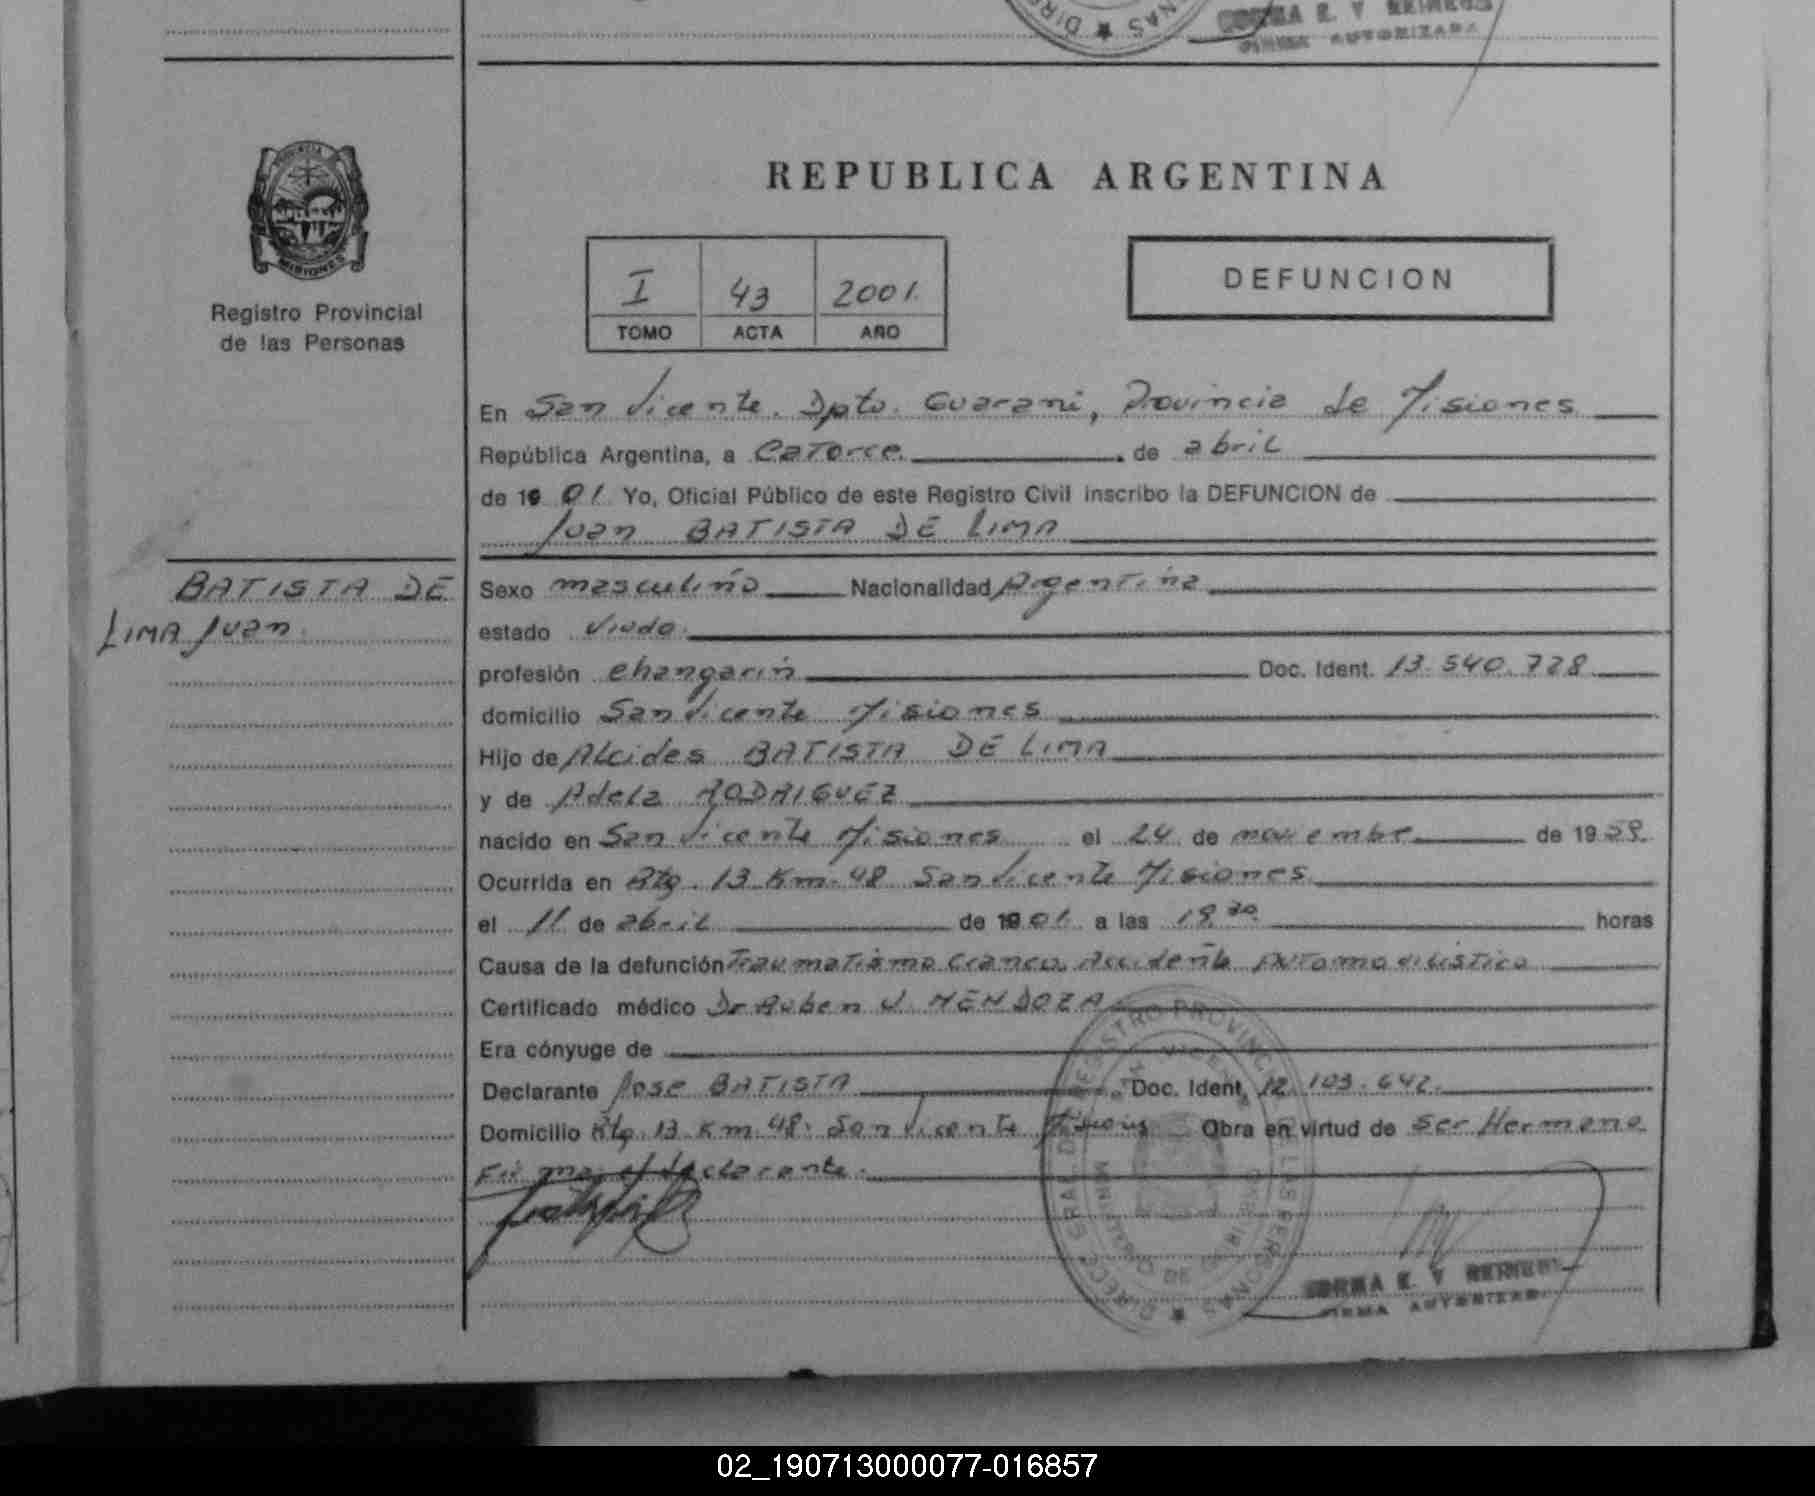 NORMA E. V REINECK
FIRMA AUTORIZADA
PROVINCIA
MISIONES
Registro Provincial
de las Personas
REPUBLICA ARGENTINA
I 43 2001.
TOMO ACTA AÑO
DEFUNCION
En San Vicente. Dpto. Guarani, Provincia de Misiones
República Argentina, a Catorce de abril
de 19 01 Yo, Oficial Público de este Registro Civil inscribo la DEFUNCION de
Juan BATISTA DE LIMA
BATISTA DE
LIMA Juan.
Sexo masculino Nacionalidad Argentina
estado Viudo.
profesión changarin Doc. Ident. 13.540.728
domicilio San Vicente Misiones
Hijo de Alcides BATISTA DE LIMA
y de Adela RODRIGUEZ
nacido en San Vicente Misiones el 24 de noviembre de 1959.
Ocurrida en Rta. 13 Km. 48 San Vicente Misiones
el 11 de abril de 1901. a las 19,30 horas
Causa de la defunción Traumatismo Craneo. Accidente Automovilistico
Certificado médico Dr Ruben J. MENDOZA
Era cónyuge de
Declarante Jose BATISTA Doc. Ident, 12.103.642.
Domicilio Rta. 13 Km 48. San Vicente Misiones Obra en virtud de ser Hermano
Firma el declarante.
NORMA E. V REINECK
FIRMA AUTORIZADA
02_190713000077-016857